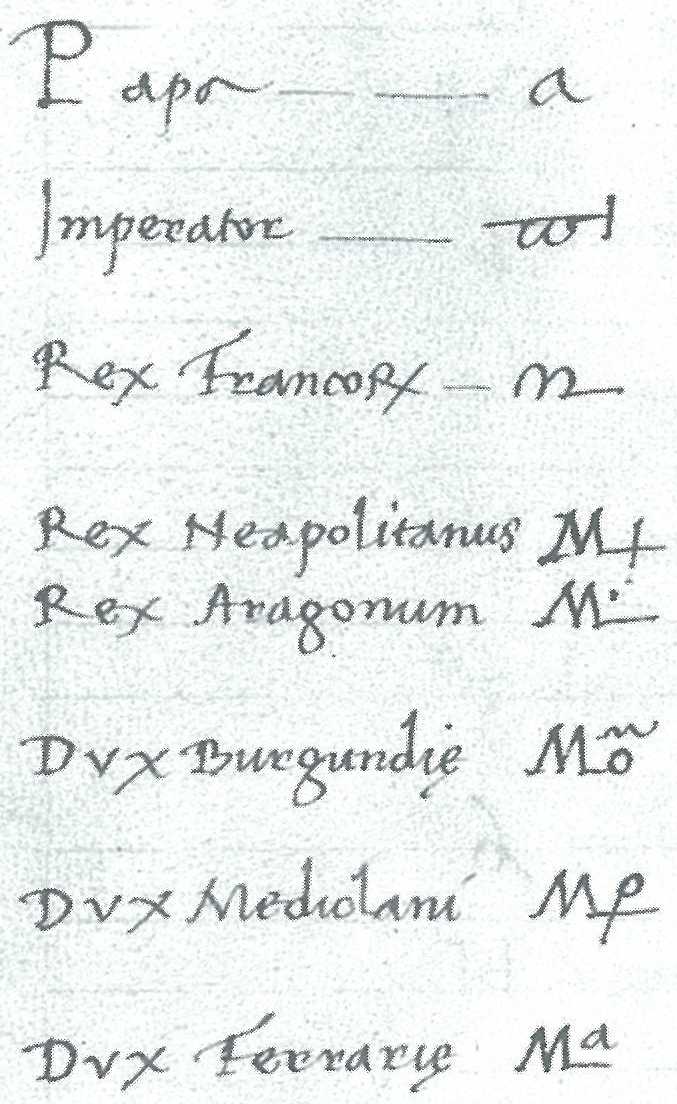 Papa — — a
Imperator —
Rex Francoꝝ —
Rex Neapolitanus M
Rex Aragonum M
Dvx Burgundię M
Dvx Mediolani M
Dvx Ferrarię Mᵃ